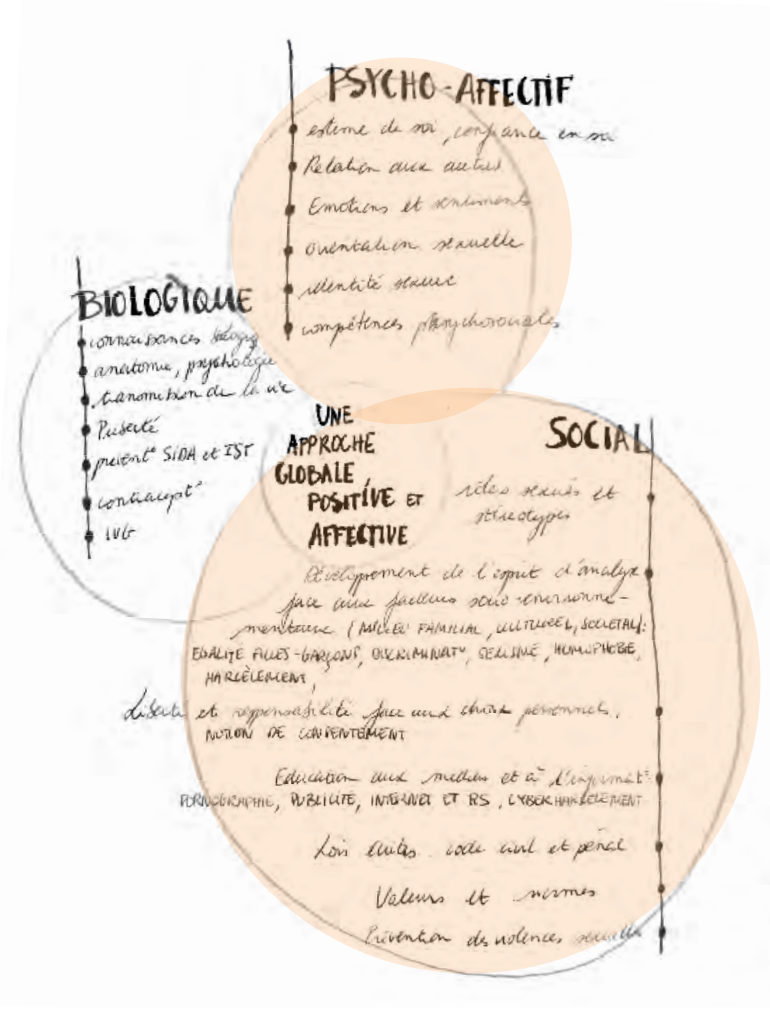 PSYCHO-AFFECTIF
estime de soi, confiance en soi
Relation aux autres
Emotions et sentiments
Orientation sexuelle
identité sexuée
compétences psychosociales
BIOLOGIQUE
connaissances
anatomie, psychologie
transmission de la vie
Puberté
prevent° SIDA et IST
contracept°
IVG
UNE
APPROCHE
GLOBALE,
POSITIVE ET
AFFECTIVE
SOCIAL
rôles sexués et
stéréotypes
Développement de l'esprit d'analyse
face aux facteurs socio-environne-
mentaux (MILIEU FAMILIAL, CULTUREL, SOCIETAL):
EGALITE FILLES-GARÇONS, DISCRIMINAT°, SEXISME, HOMOPHOBIE,
HARCÈLEMENT,
Liberté et responsabilité face aux choix personnels,
NOTION DE CONSENTEMENT
Education aux medias et à l'informat°:
PORNOGRAPHIE, PUBLICITE, INTERNET ET RS, CYBERHARCELEMENT
Lois code civil et pénal
Valeurs et normes
Prévention des violences sexuelles